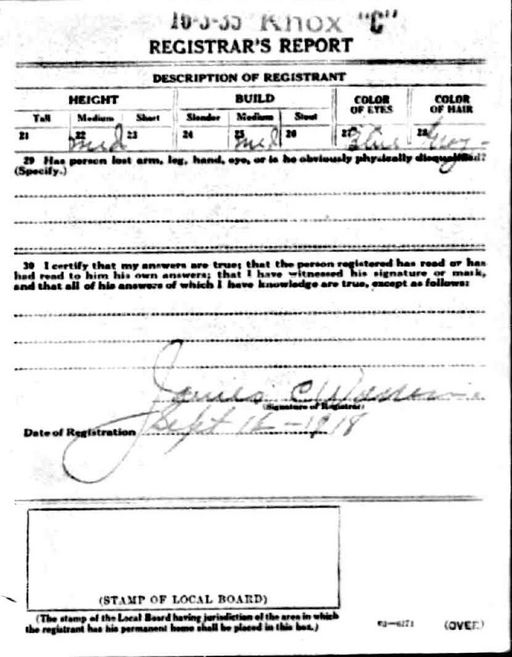 16-3-35 Knox "C"
REGISTRAR'S REPORT
DESCRIPTION OF REGISTRANT
HEIGHT BUILD COLOR OF EYES COLOR OF HAIR
Tall Medium Short Slender Medium Stout
21 22 med 23 24 25 med 26 27 Blue 28 Gray
29 Has person lost arm, leg, hand, eye, or is he obviously physically disqualified?
(Specify.)
30 I certify that my answers are true; that the person registered has read or has
had read to him his own answers; that I have witnessed his signature or mark,
and that all of his answers of which I have knowledge are true, except as follows:
James C
(Signature of Registrar)
Date of Registration Sept 12-1918
(STAMP OF LOCAL BOARD)
(The stamp of the Local Board having jurisdiction of the area in which
the registrant has his permanent home shall be placed in this box.)
03-6171 (OVER)